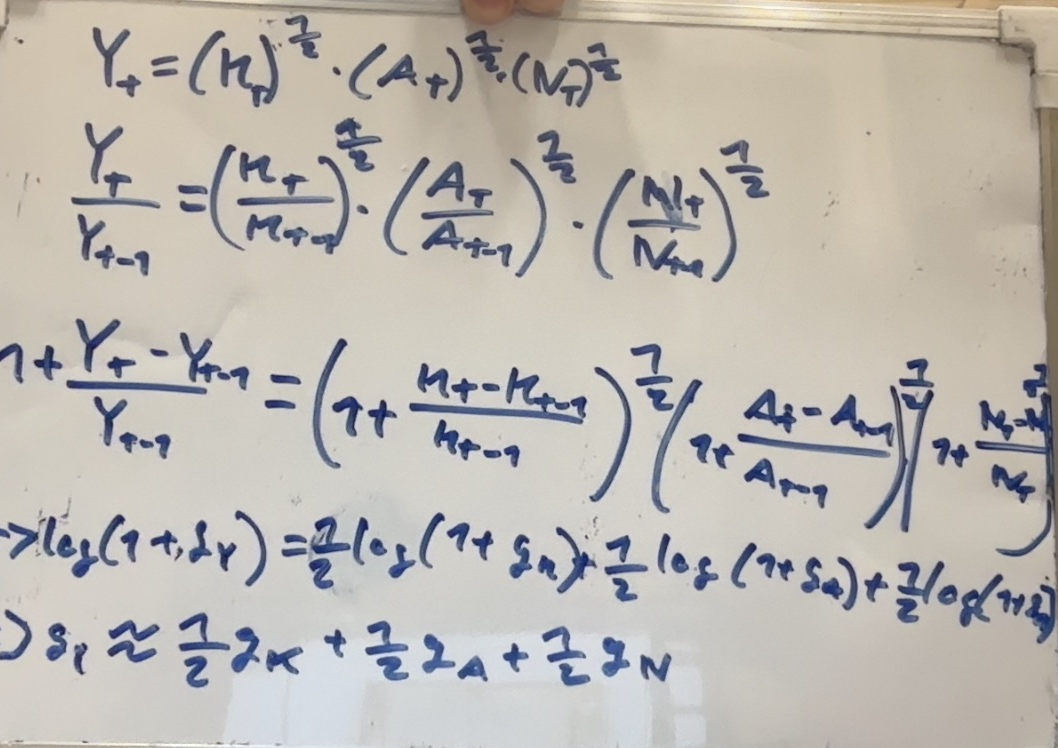 Y_t = (K_t)^{1/2} · (A_t)^{1/2} · (N_t)^{1/2}
\frac{Y_t}{Y_{t-1}} = (\frac{K_t}{K_{t-1}})^{1/2} · (\frac{A_t}{A_{t-1}})^{1/2} · (\frac{N_t}{N_{t-1}})^{1/2}
1 + \frac{Y_t - Y_{t-1}}{Y_{t-1}} = (1 + \frac{K_t - K_{t-1}}{K_{t-1}})^{1/2} (1 + \frac{A_t - A_{t-1}}{A_{t-1}})^{1/2} (1 + \frac{N_t - N}{N_t})
→ log(1 + g_Y) = \frac{1}{2} log(1 + g_K) + \frac{1}{2} log(1 + g_A) + \frac{1}{2} log(1 + g_N)
g_Y ≈ \frac{1}{2} g_K + \frac{1}{2} g_A + \frac{1}{2} g_N